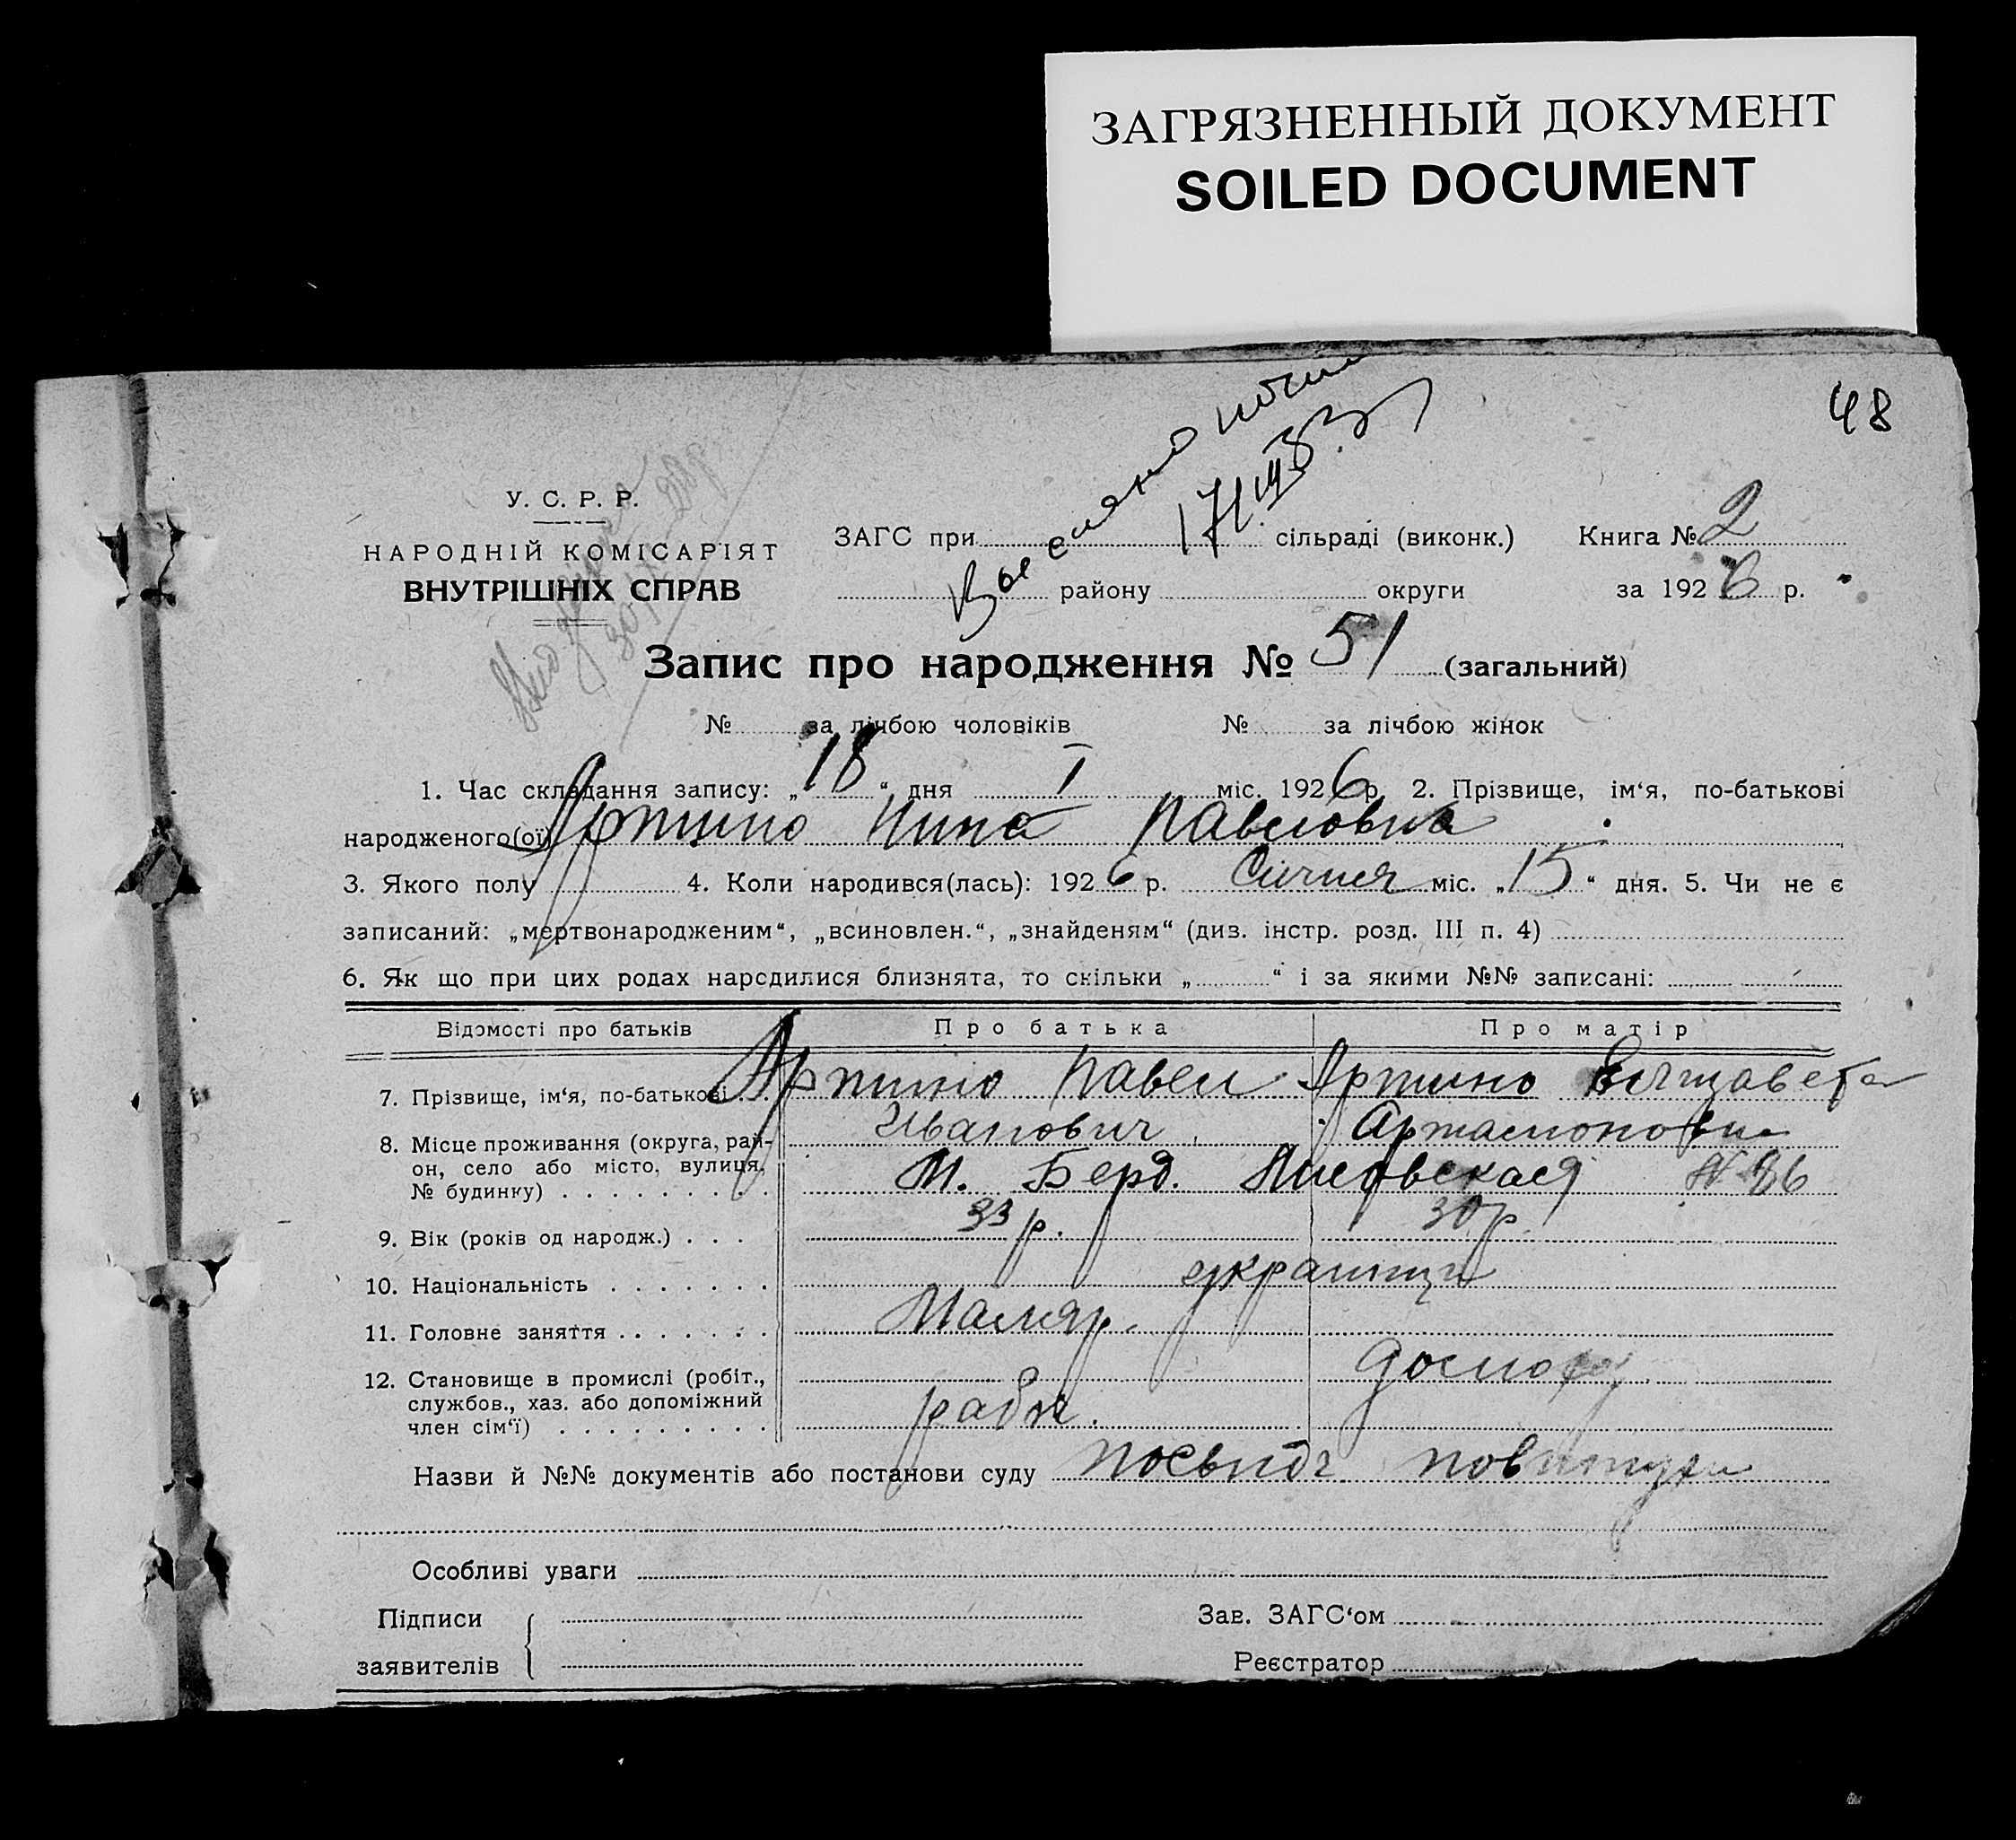 ЗАГРЯЗНЕННЫЙ ДОКУМЕНТ
SOILED DOCUMENT
48
У. С. Р. Р.
НАРОДНІЙ КОМІСАРІЯТ
ВНУТРІШНІХ СПРАВ
ЗАГС при сільраді (виконк.) Книга № 2
району округи за 1926 р.
Запис про народження № 51 (загальний)
№ за лічбою чоловіків № за лічбою жінок
1. Час складання запису: „18“ дня I міс. 1926 р. 2. Прізвище, ім‘я, по-батькові
народженого(ої) Нина Павловна
3. Якого полу 4. Коли народився(лась): 1926 р. Січня міс. „15“ дня. 5. Чи не є
записаний: „мертвонародженим“, „всиновлен.“, „знайденям“ (див. інстр. розд. III п. 4)
6. Як що при цих родах народилися близнята, то скільки „ “ і за якими №№ записані:
Відомості про батьків Про батька Про матір
7. Прізвище, ім‘я, по-батькові Павел
Иванович
8. Місце проживання (округа, рай-
он, село або місто, вулиця,
№ будинку) М. Берд.
9. Вік (років од народж.) 33 р. 30 р.
10. Національність українці
11. Головне заняття Маляр.
12. Становище в промислі (робіт.,
службов., хаз. або допоміжний
член сім‘ї)
Назви й №№ документів або постанови суду посвідч повитухи
Особливі уваги
Підписи
заявителів
Зав. ЗАГС‘ом
Реєстратор